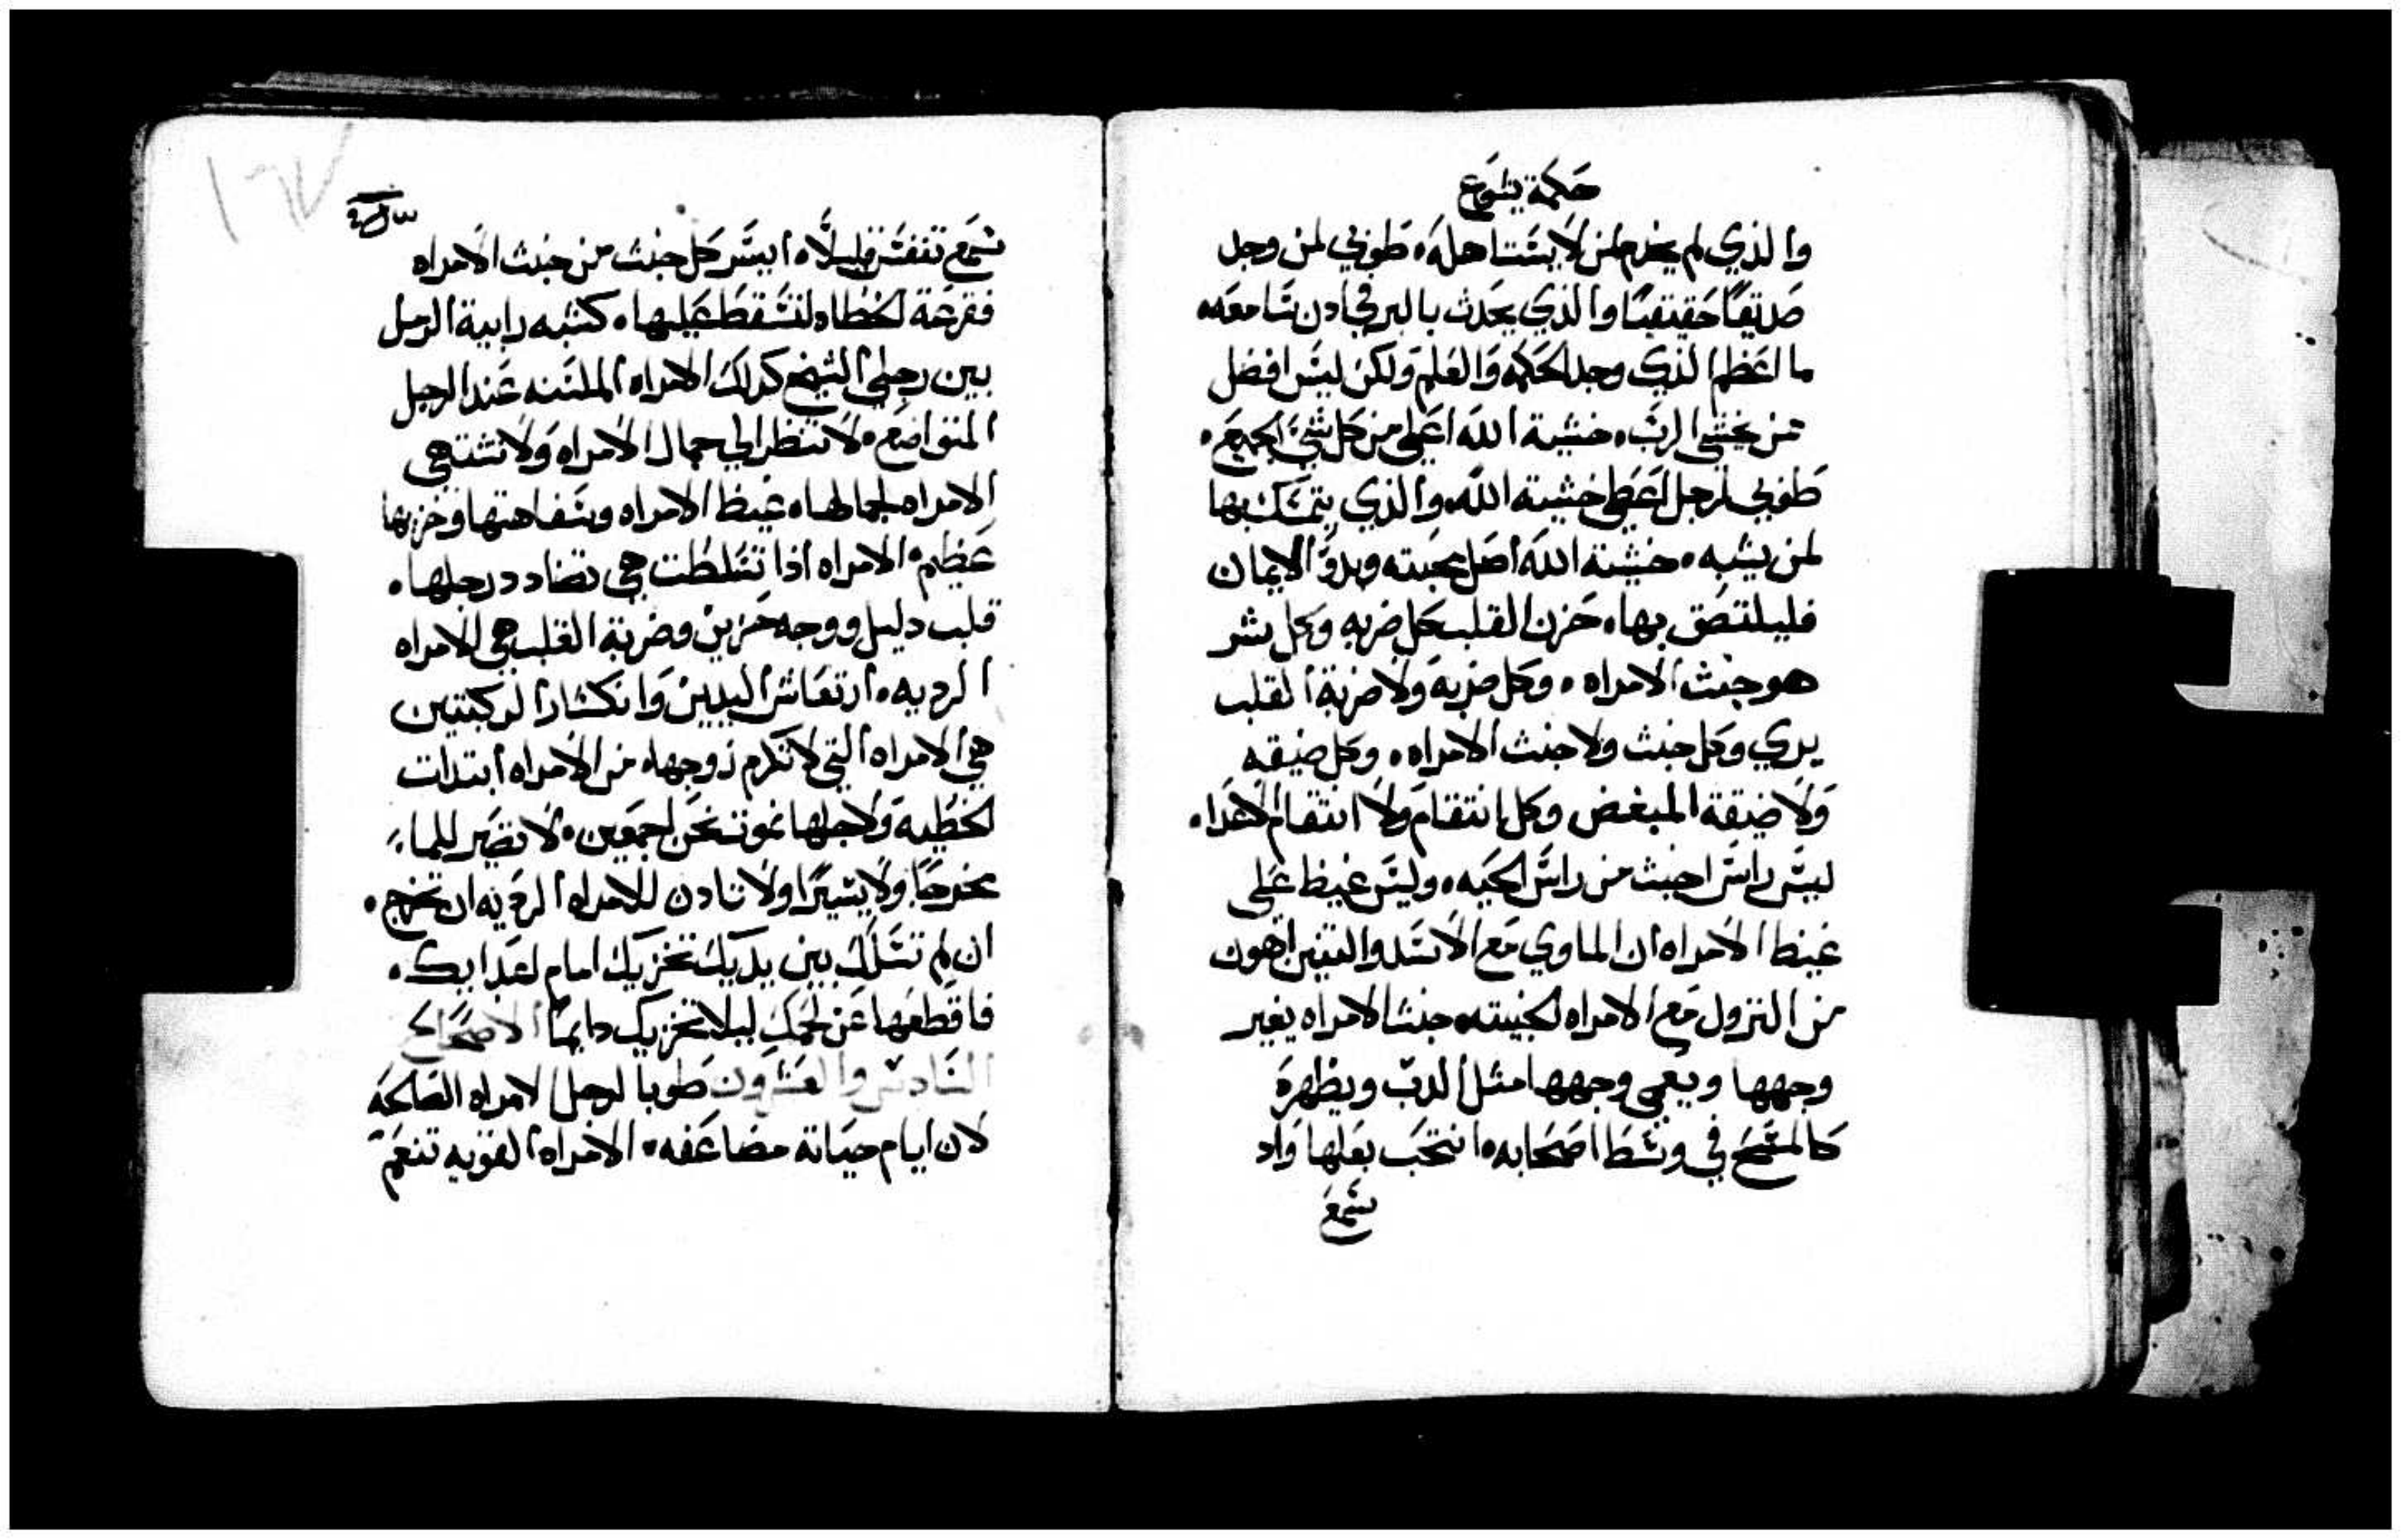 حكمة يشوع
والذي لم يخدم لمن لا يستاهله. طوبي لمن وجد
صديقًا حقيقيًا والذي يحدث بالبر في ادن سامعه
ما اعظم الذي وجد الحكمه والعلم ولكن ليس افضل
ممن يخشي الرب. خشية الله اعلي من كل شيء الجميع.
طوبي لرجل اعطي خشيته الله. والذي يتمسك بها
لمن يشبه. خشيته الله اصل محبته وبدوّ الايمان
فليلتصق بها. حزن القلب كل ضربه وكل شر
هو خبث الامراه. وكل ضربه ولا ضربة القلب
يري وكل خبث ولا خبث الامراه. وكل ضيقه
ولا ضيقة المبغض وكل انتقام ولا انتقام الاعدا.
ليس راس اخبث من راس الحيه. وليس غيظ علي
غيظ الامراه ان الماوي مع الاسد والتنين اهون
من النزول مع الامراه الخبيته. خبث الامراه يغير
وجهها ويعمي وجهها مثل الدب ويظهره
كالمسح في وسط اصحابه. انتحب بعلها واد
سمع
سمع تنفس قليلًا. ايسر كل خبث من خبث الامراه
فقرعة الخطاه لتسقط عليها. كشبه رابية الرمل
بين رجلي الشيخ كدلك الامراه الملسنه عند الرجل
المتواضع. لا تنظر الي جمال الامراه ولا تشتهي
الامراه لجمالها. غيظ الامراه وسفاهتها وخزيها
عظيم. الامراه ادا تسلطت هي تضادد رجلها.
قلب دليل ووجه حزين وضربة القلب هي الامراه
الرديه. ارتعاش اليدين وانكسار الركبتين
هي الامراه التي لا تكرم زوجها. من الامراه ابتدات
الخطيه ولاجلها نموت نحن اجمعين. لا تصير للماء
مخرجًا ولا يسيرًا ولا تادن للامراه الرديه ان تخرج.
ان لم تسلك بين يديك تخزيك امام اعدايك.
فاقطعها عن لحمك ليلا تخزيك دايمًا الاصحاح
السادس والعشرون طوبا لرجل الامراه الصالحه
لان ايام حياته مضاعفه. الامراه القويه تنعم